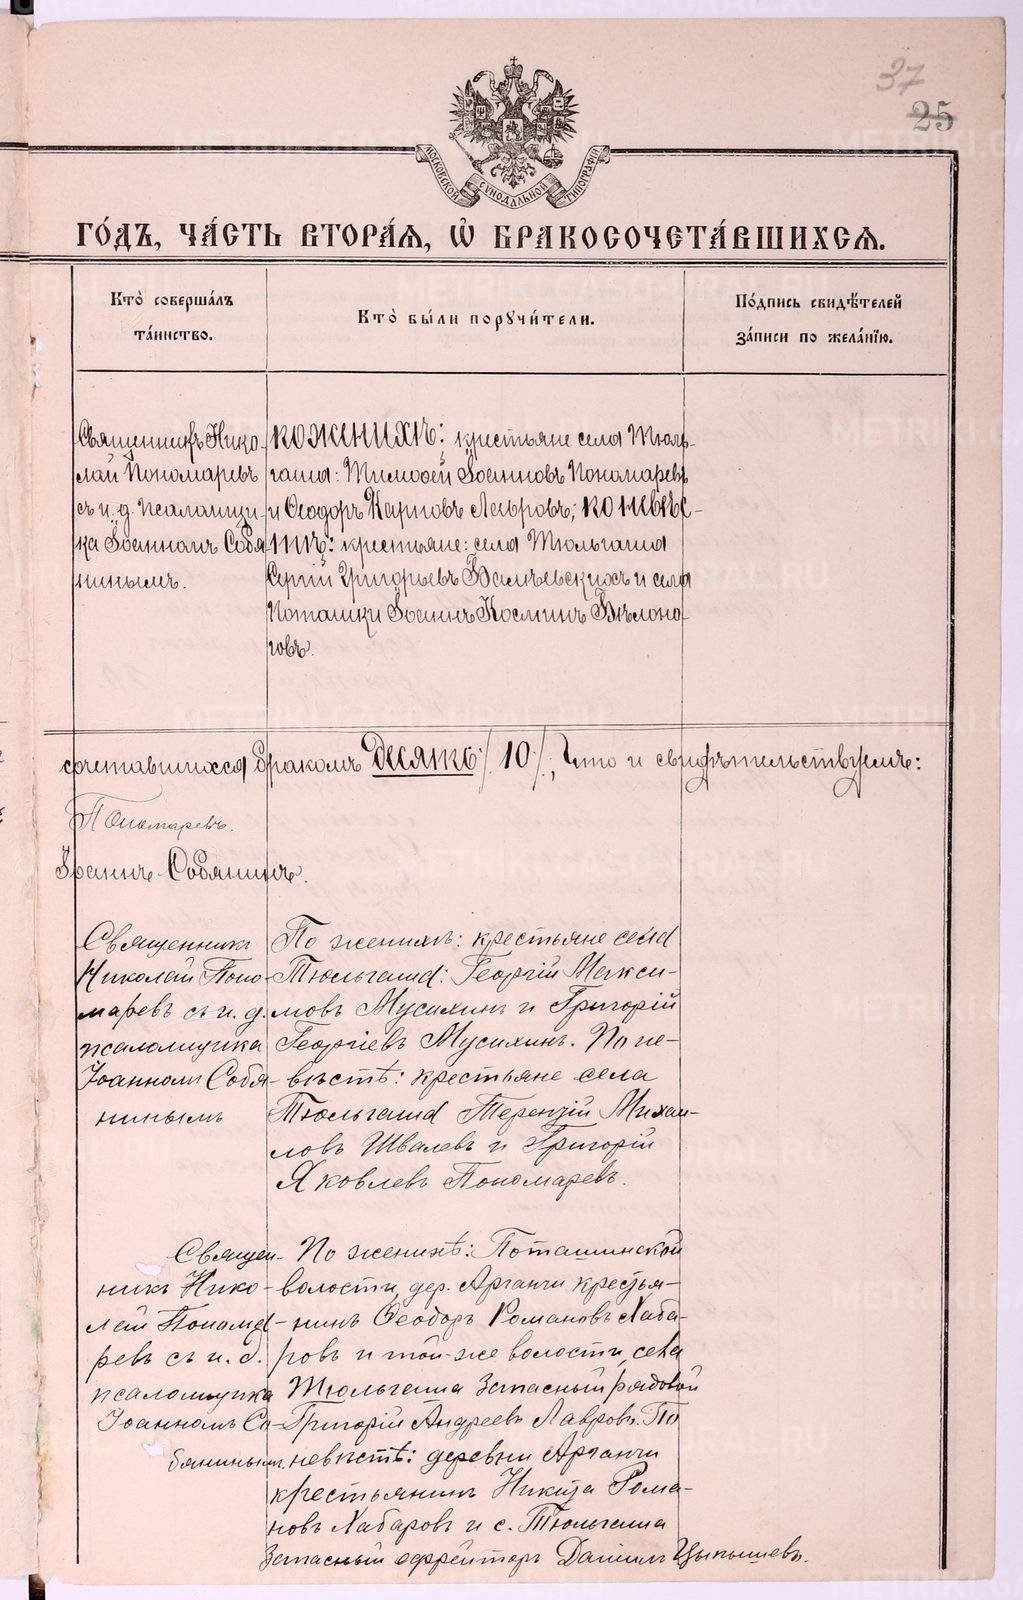 37
25
МОСКОВСКОЙ СѴНОДАЛЬНОЙ ТИПОГРАФІИ
ГО́ДЪ, ЧА́СТЬ ВТОРА́Я, Ѡ҆ БРАКОСОЧЕТА́ВШИХСЯ.
Кто̀ соверша́лъ
та́инство.
Кто̀ бы́ли порꙋчи́тели.
По́дпись свидѣ́телей
за́писи по жела́нїю.
Священникъ Нико-
лай Пономаревъ
съ и. д. псаломщи-
ка Іоанномъ Собя
нинымъ.
по женихѣ: крестьяне села Тюль-
гаша: Тимофей Іоанновъ Пономаревъ
и Ѳеодоръ Карповъ Лавровъ; по невѣс-
тѣ: крестьяне: села Тюльгаша
Сергій Григорьевъ и села
Поташки Іоаннъ Косминъ Бѣлоно-
говъ.
сочетавшихся бракомъ десять /10/, что и свидѣтельствуемъ:
Пономаревъ.
Іоаннъ Собянинъ.
Священникъ
Николай Поно-
маревъ съ и. д.
псаломщика
Іоанномъ Собя-
нинымъ
По женихѣ: крестьяне села
Тюльгаша: Георгій Макси-
мовъ Мусихинъ и Григорій
Георгіевъ Мусихинъ. По не-
вѣстѣ: крестьяне села
Тюльгаша Терентій Михаи-
ловъ Швалевъ и Григорій
Яковлевъ Пономаревъ.
Священ-
никъ Нико-
лай Понома-
ревъ съ и. д.
псаломщика
Іоанномъ Со-
бянинымъ.
По женихѣ: Поташинской
волости, дер. Артанчи крестья-
нинъ Ѳеодоръ Романовъ Хаба-
ровъ и той-же волости, села
Тюльгаша Запасный рядовой
Григорій Андреевъ Лавровъ. По
невѣстѣ: деревни Артанчи
крестьянинъ Никита Рома-
новъ Хабаровъ и с. Тюльгаша
Запасный ефрейторъ Даніилъ Цыпышевъ.
METRIKI.GASO-URAL.RU